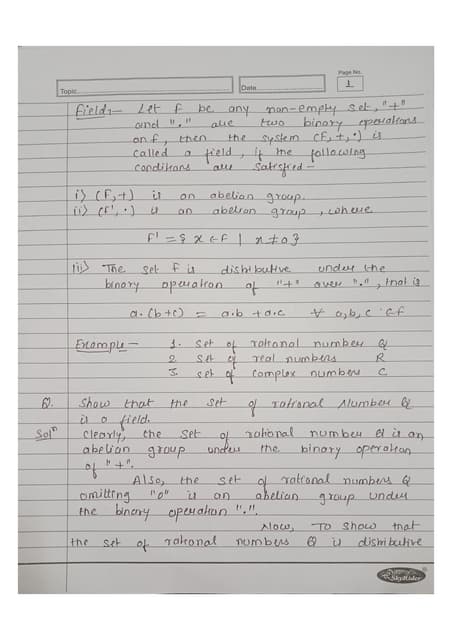 Page No.
1
Topic
Date
Field:- Let F be any non-empty set, "+"
and "." are two binary operations
on F, then the system (F,+,·) is
called a field, if the following
conditions are satisfied -
i) (F,+) is an abelian group.
ii) (F', ·) is an abelian group, where
F' = { x ∈ F | x ≠ 0 }
iii) The set F is distributive under the
binary operation of "+" over ".", that is
a.(b+c) = a.b + a.c ∀ a,b,c ∈ F
Example - 1. Set of rational number Q
2. Set of real numbers R
3. set of complex numbers C
Q. Show that the set of rational Number Q
is a field.
Solⁿ Clearly, the set of rational number Q is an
abelian group under the binary operation
of "+".
Also, the set of rational numbers Q
omitting "0" is an abelian group under
the binary operation ".".
Now, To show that
the set of rational numbers Q is distributive
SkyRider